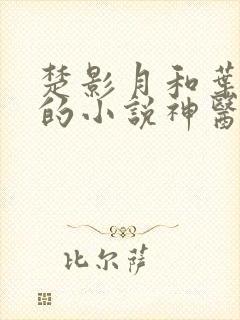 楚影月和葉
的小說神醫
比尔萨